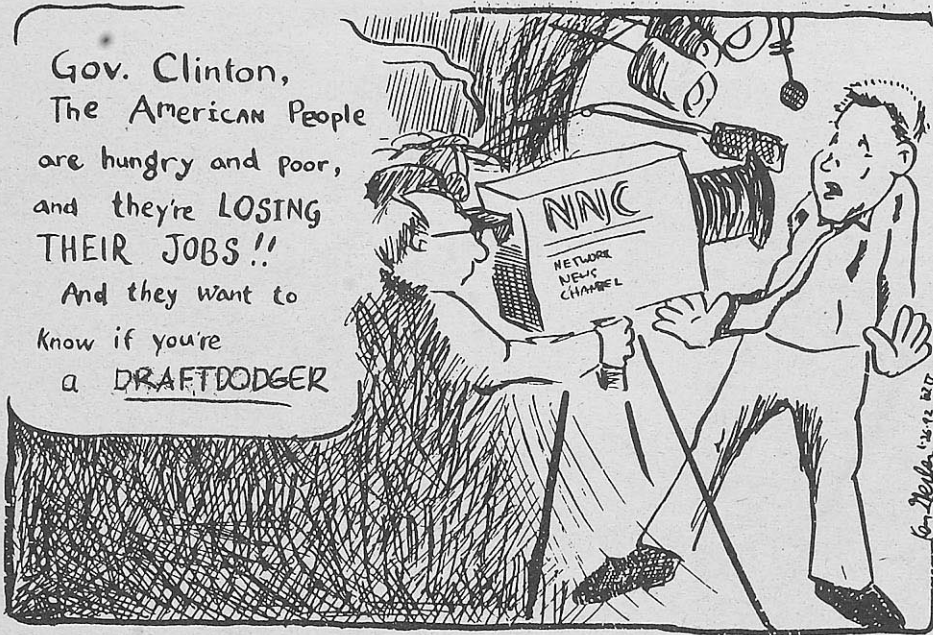 Gov. Clinton,
The American People
are hungry and poor,
and they're LOSING
THEIR JOBS!!
And they want to
know if you're
a DRAFTDODGER
NNC
NETWORK
NEWS
CHANNEL